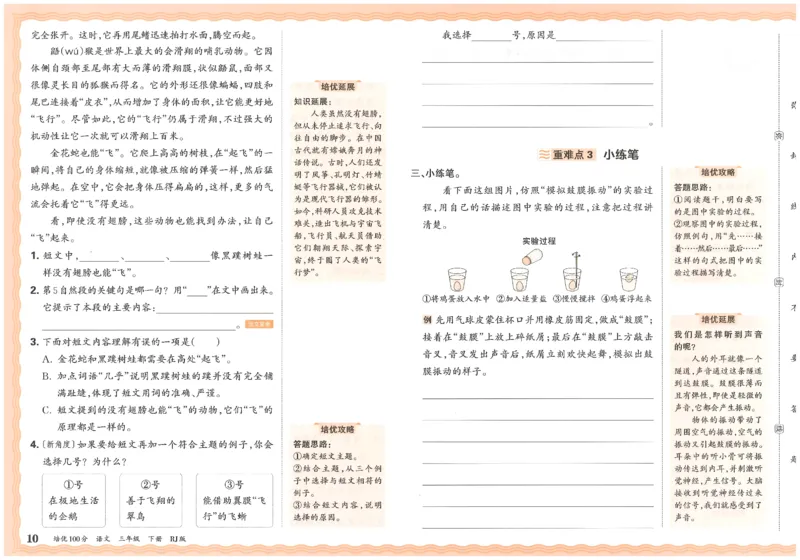 完全张开。这时,它再用尾鳍迅速拍打水面,腾空而起。
鼯(wú)猴是世界上最大的会滑翔的哺乳动物。它因
体侧自颈部至尾部有大而薄的滑翔膜,状似鼯鼠,面部又
很像灵长目的狐猴而得名。它的外形还很像蝙蝠,四肢和
尾巴连接着“皮衣”,从而增加了身体的面积,让它能更好地
“飞行”。尽管如此,它的“飞行”仍属于滑翔,不过强大的
机动性让它一次就可以滑翔上百米。
金花蛇也能“飞”。它爬上高高的树枝,在“起飞”的一
瞬间,将自己的身体缩短,就像被压缩的弹簧一样,然后猛
地弹起。在空中,它会把身体压得扁扁的,这样,更多的气
流会托着“飞”得更远。
看,即使没有翅膀,这些动物也能找到办法,让自己
“飞”起来。
1. 短文中,______、______、______像黑蹼树蛙一
样没有翅膀也能“飞”。
2. 第5自然段的关键句是哪一句? 用“____”在文中画出来。
它提示了本段的主要内容:
。
3. 下面对短文内容理解有误的一项是( )
A. 金花蛇和黑蹼树蛙都需要在高处“起飞”。
B. 加点词语“几乎”说明黑蹼树蛙的蹼并没有完全铺
满趾缝,体现了短文用词的准确、严谨。
C. 短文提到的没有翅膀也能“飞”的动物,它们“飞”的
原理都是一样的。
4. (新角度)如果要给短文再加一个符合主题的例子,你会
选择几号? 为什么?
①号
在极地生活
的企鹅
②号
善于飞翔的
翠鸟
③号
能借助翼膜“飞
行”的飞蜥
10 培优100分 语文 三年级 下册 RJ版
培优延展
知识延展:
人类虽然没有翅膀,
但从未停止追求飞行、向
往自由的脚步。在中国
古代就有嫦娥奔月的神
话传说。古时,人们还发
明了风筝、孔明灯、竹蜻
蜓等飞行器械,它们被认
为是现代飞行器的雏形。
如今,科研人员攻克技术
难关,造出飞机与宇宙飞
船,飞行员、航天员借助
它们翱翔天际、探索宇
宙,终于圆了人类的“飞
行梦”。
培优攻略
答题思路:
①确定短文主题。
②结合主题,从三个例
子中选择与短文相符的
例子。
③结合短文内容,说明
选择的原因。
我选择______号,原因是
。
重难点3 小练笔
三、小练笔。
看下面这组图片,仿照“模拟鼓膜振动”的实验过
程,用自己的话描述图中实验的过程,注意把过程讲
清楚。
实验过程
①将鸡蛋放入水中 ②加入适量盐 ③慢慢搅拌 ④鸡蛋浮起来
例 先用气球皮蒙住杯口并用橡皮筋固定,做成“鼓膜”;
接着在“鼓膜”上放上碎纸屑;最后在“鼓膜”上方敲击
音叉,音叉发出声音后,纸屑立刻欢快起舞,模拟出鼓
膜振动的样子。
培优攻略
答题思路:
①阅读题干,明白要写
的是图中实验的过程。
②观察图中的实验过程,
仿照例句,用“先……接
着……然后……最后……”
这样的句式把图中的实
验过程描写清楚。
培优延展
我们是怎样听到声音
的呢?
人的外耳就像一个
隧道,声音通过这条隧道
到达鼓膜。鼓膜很薄而
且有弹性,即使是轻微的
声音,它都会产生振动。
物体的振动带动了
周围空气的振动,空气的
振动又引起鼓膜的振动。
耳朵中的听小骨可将振
动传达到内耳,并刺激听
觉神经,产生信号。大脑
接收到听觉神经传过来
的信号,我们就感受到了
声音。